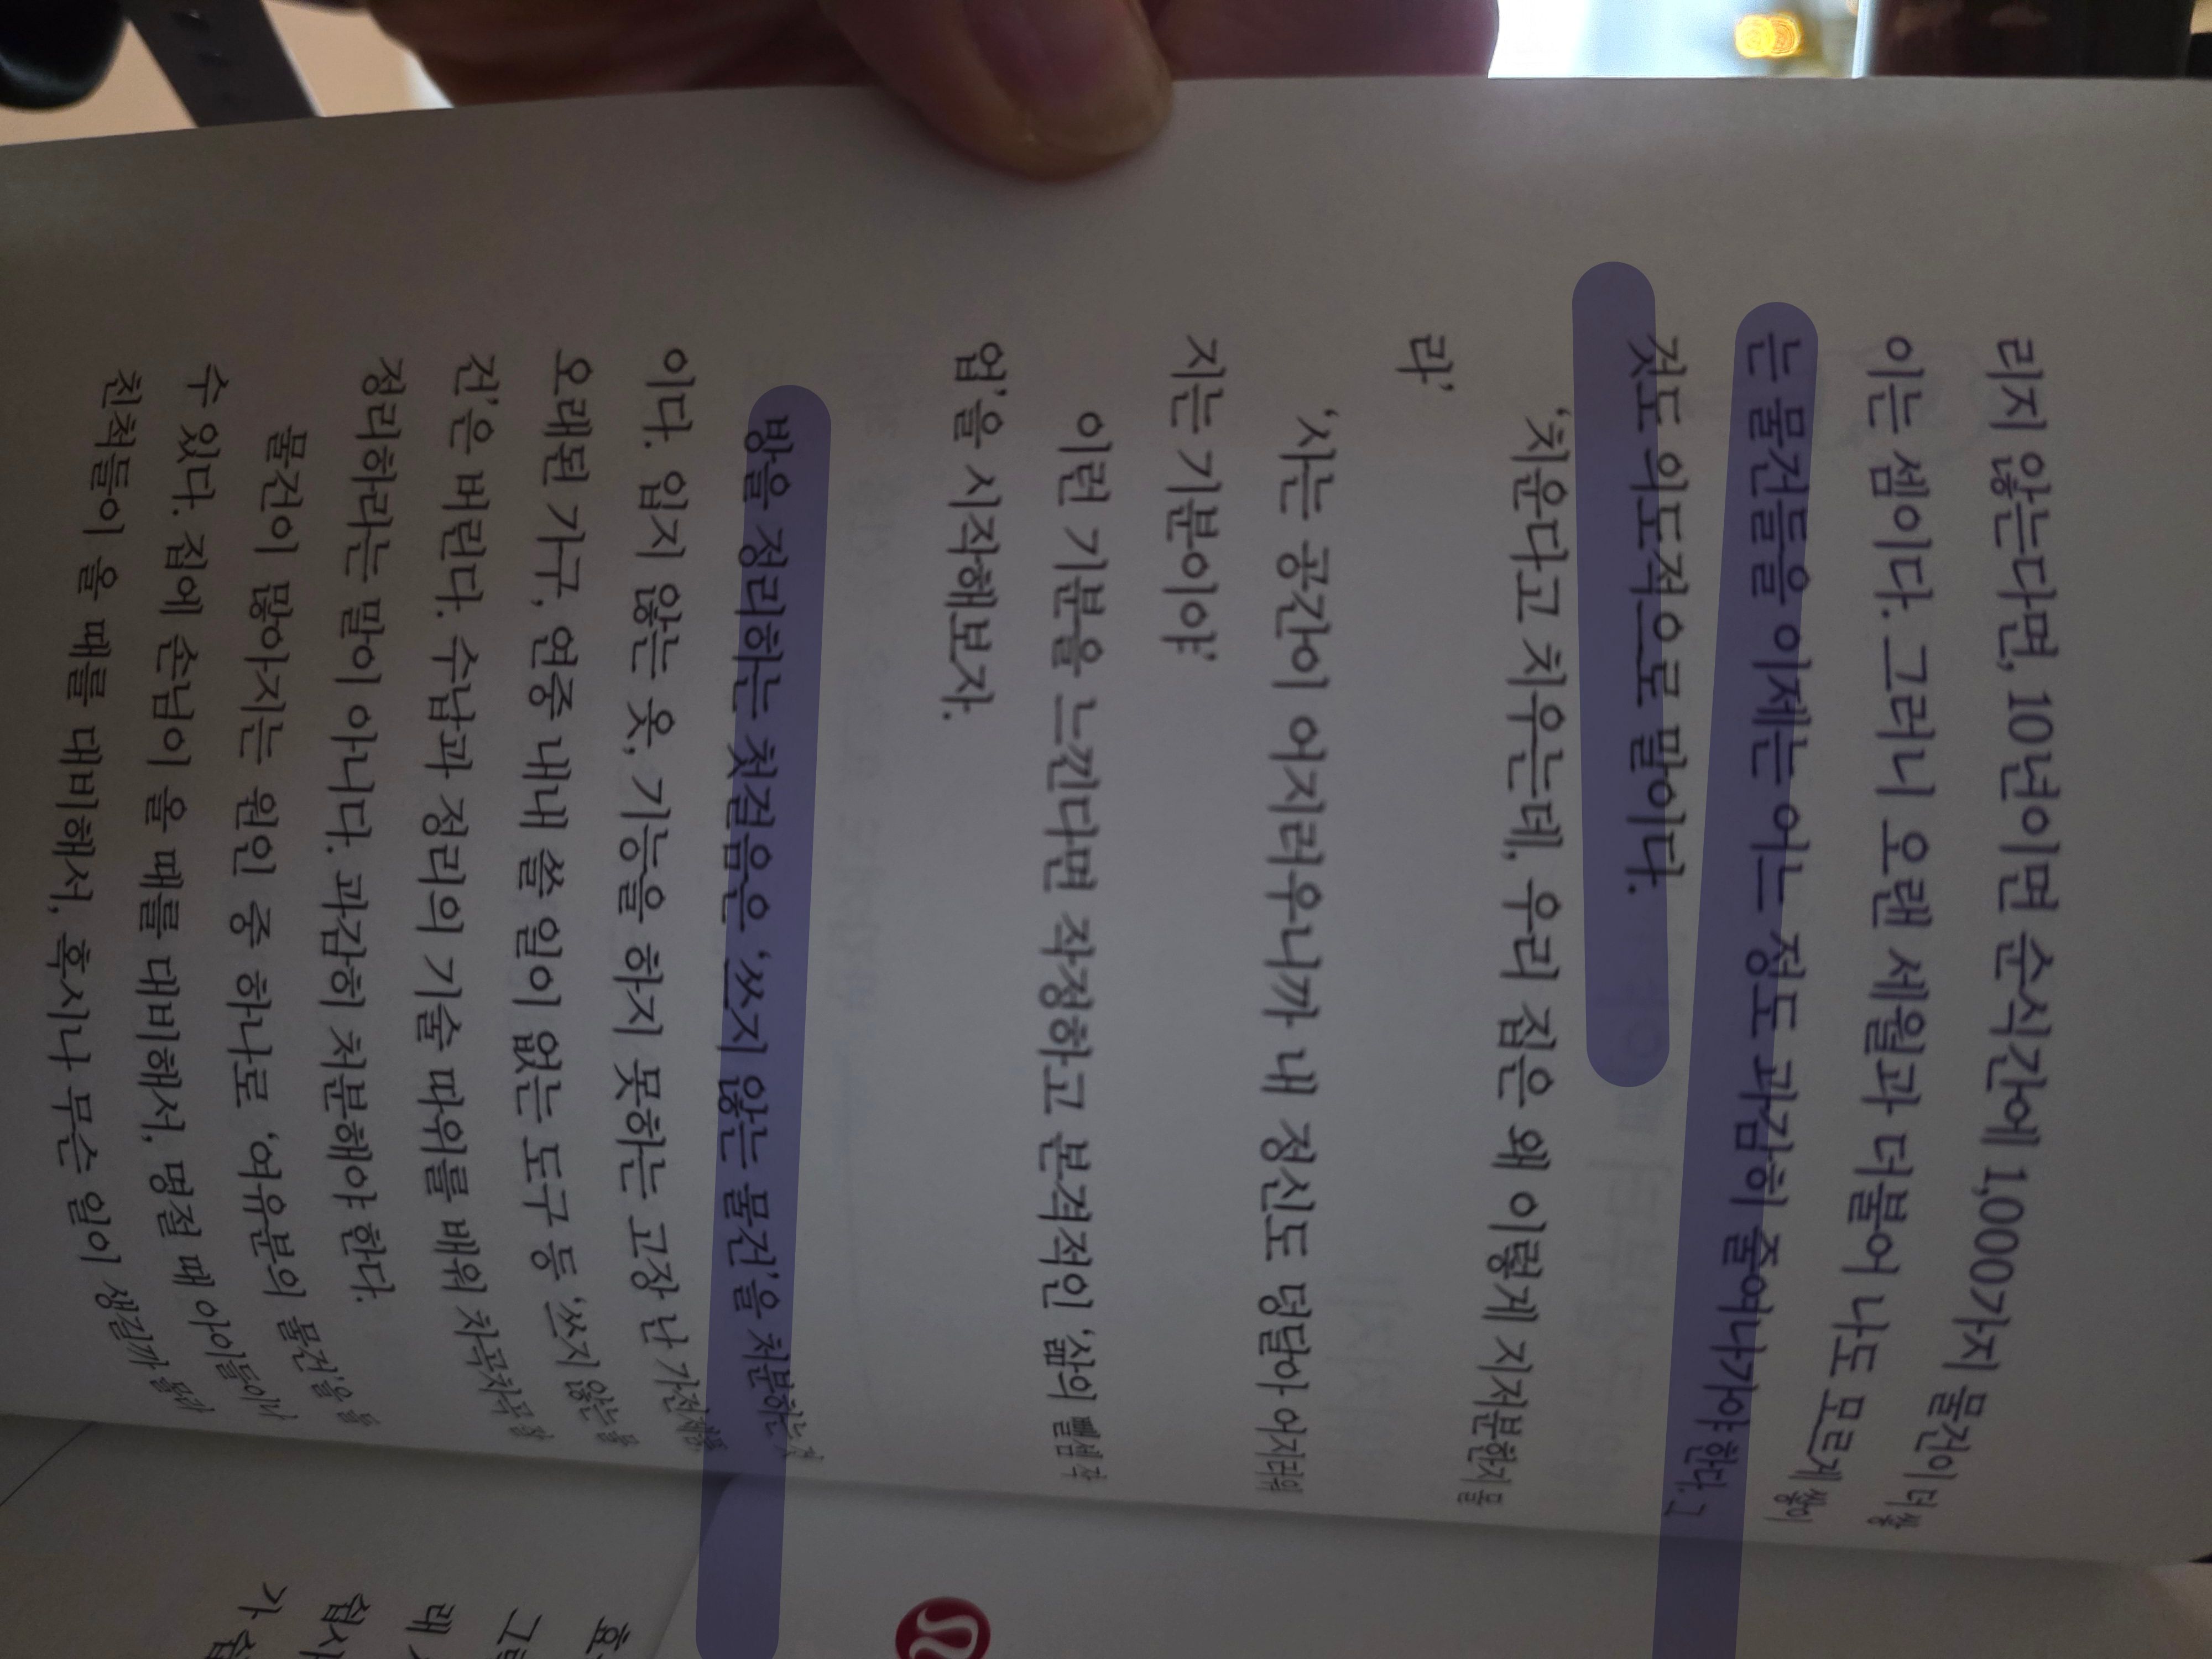 리지 않는다면, 10년이면 순식간에 1,000가지 물건이 더 쌓
이는 셈이다. 그러니 오랜 세월과 더불어 나도 모르게 쌓이
는 물건들을 이제는 어느 정도 과감히 줄여나가야 한다. 그
것도 의도적으로 말이다.
'치운다고 치우는데, 우리 집은 왜 이렇게 지저분한지 몰
라'
'사는 공간이 어지러우니까 내 정신도 덩달아 어지러워
지는 기분이야'
이런 기분을 느낀다면 작정하고 본격적인 '삶의 뺄셈 작
업'을 시작해보자.
방을 정리하는 첫걸음은 '쓰지 않는 물건'을 처분하는 것
이다. 입지 않는 옷, 기능을 하지 못하는 고장 난 가전제품,
오래된 가구, 연중 내내 쓸 일이 없는 도구 등 '쓰지 않는 물
건'은 버린다. 수납과 정리의 기술 따위를 배워 차곡차곡 잘
정리하라는 말이 아니다. 과감히 처분해야 한다.
물건이 많아지는 원인 중 하나로 '여유분의 물건'을 들
수 있다. 집에 손님이 올 때를 대비해서, 명절 때 아이들이나
친척들이 올 때를 대비해서, 혹시나 무슨 일이 생길까 몰라
그
레
쉽사
가 쉽